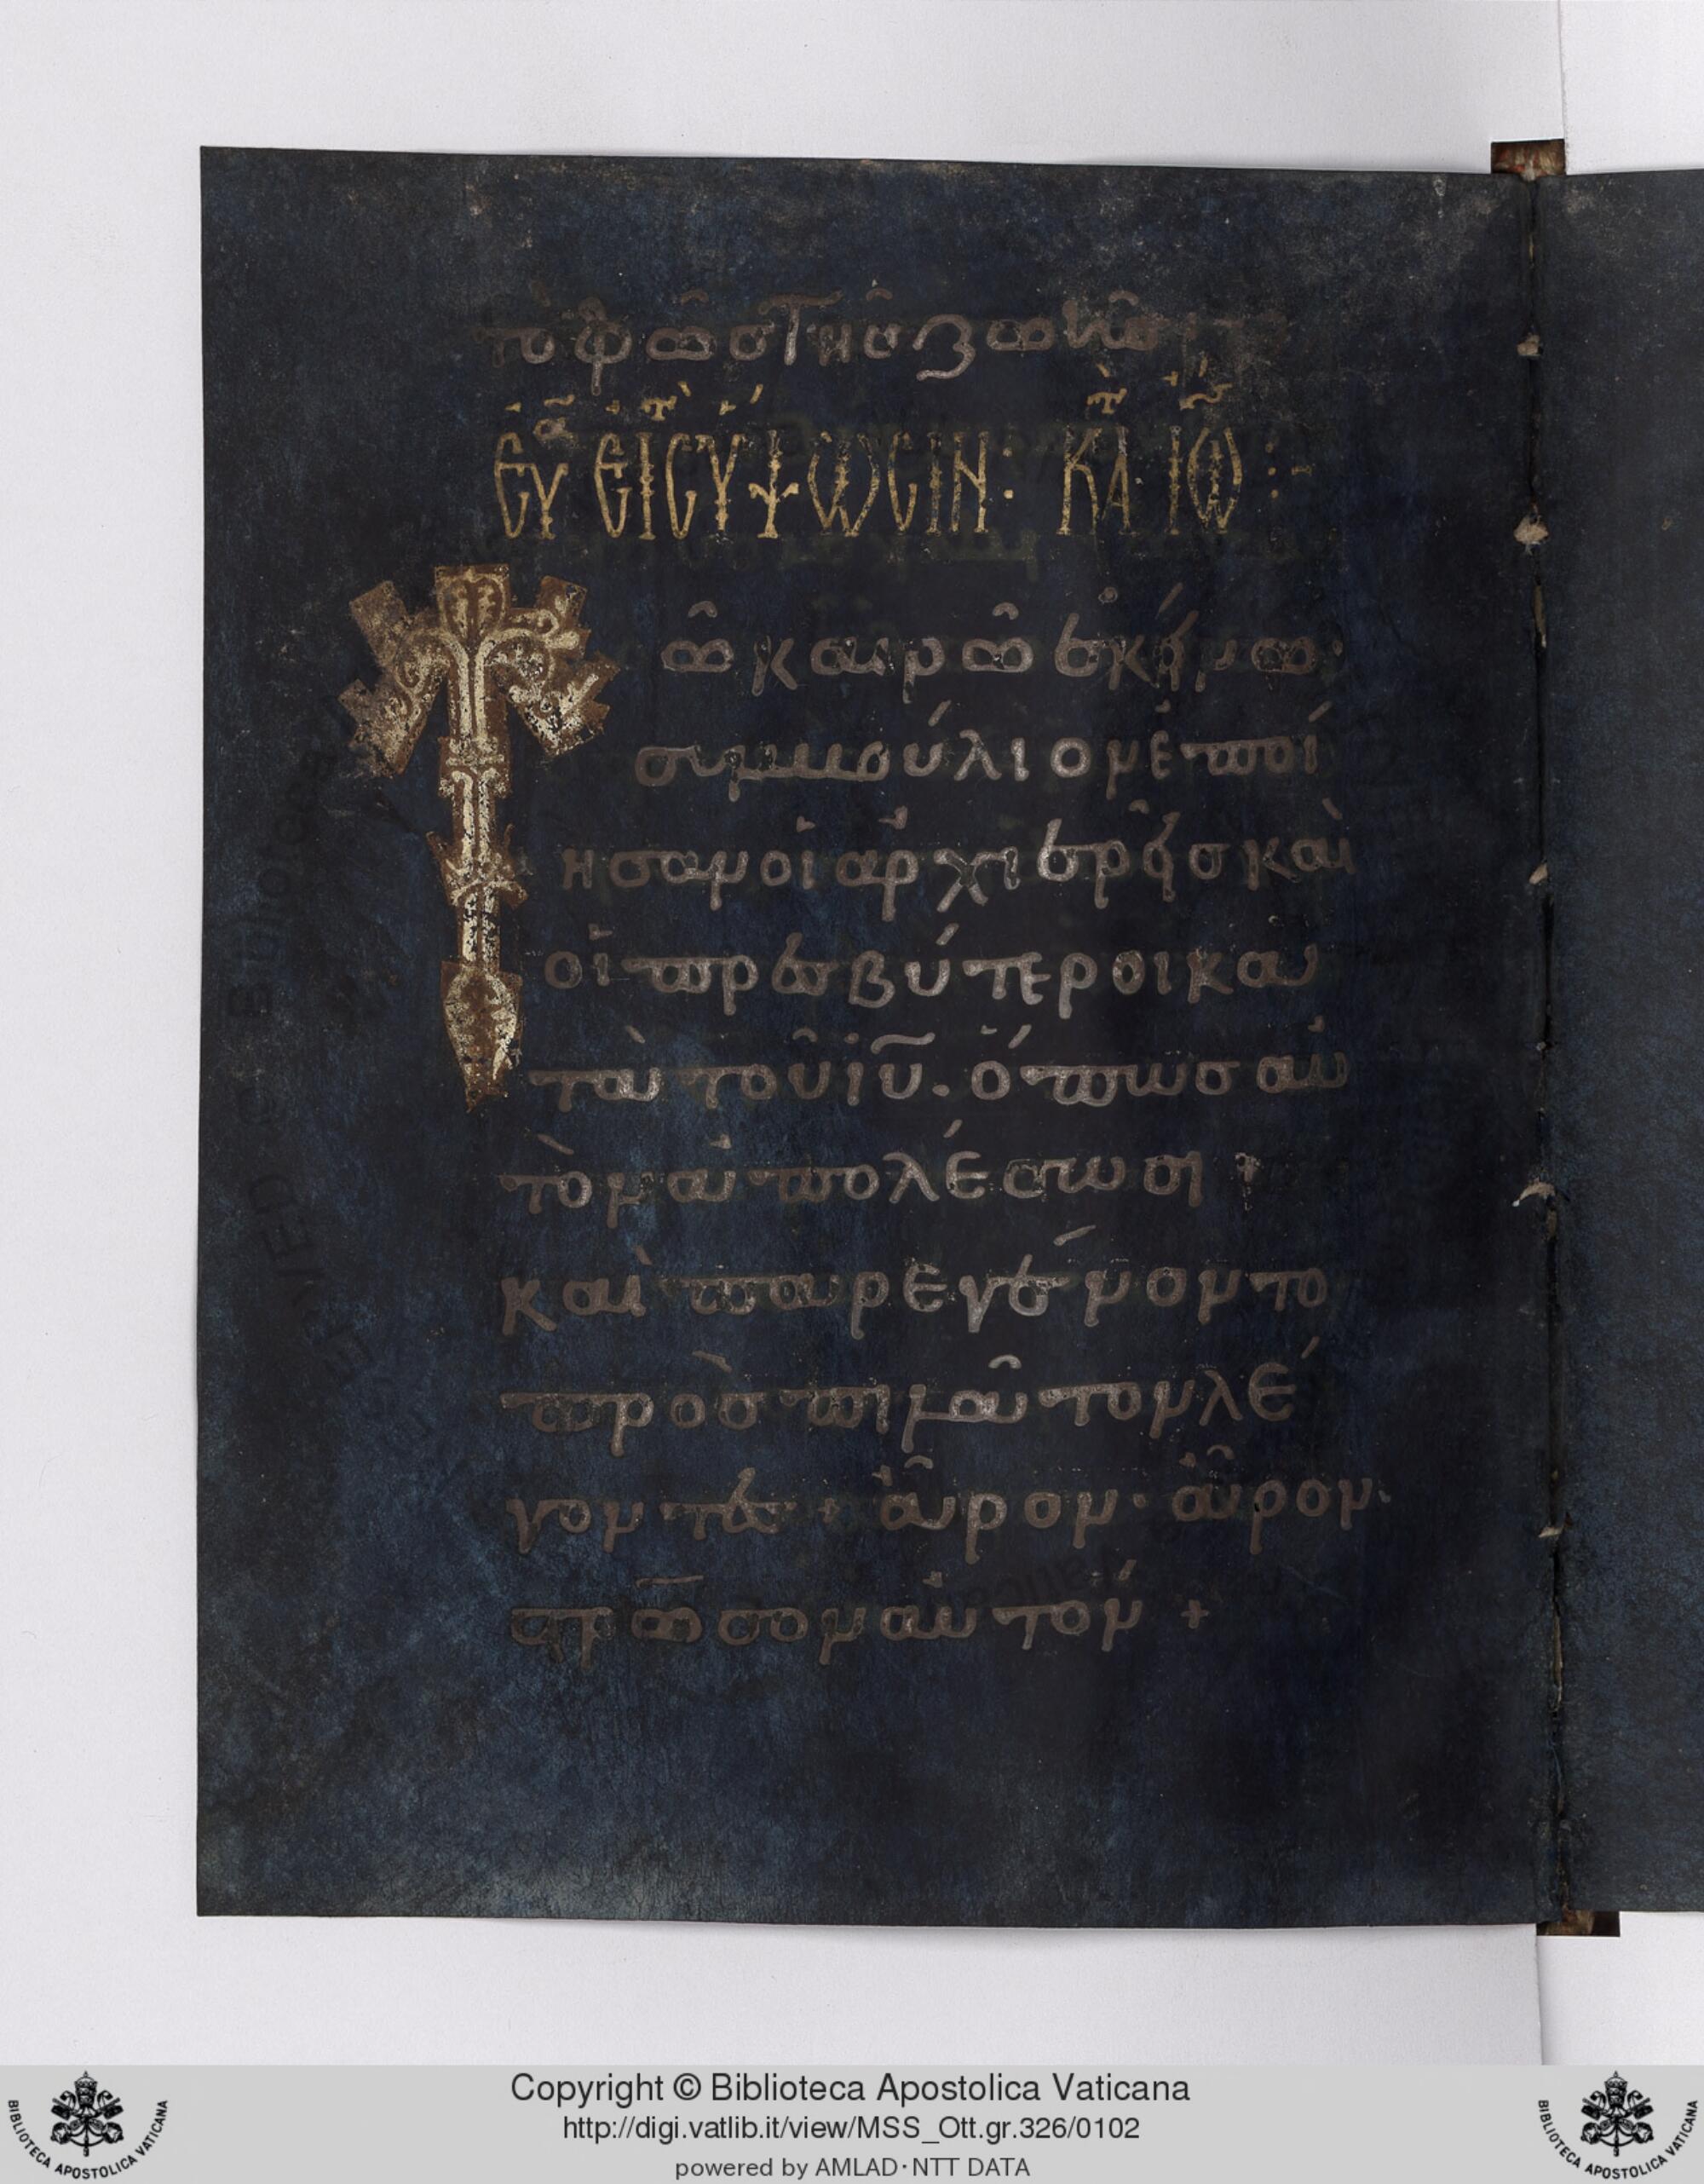 τὸ φῶς τῆς ζωῆς:
ΕΥ ΕΙΣ ΥΨΩΣΙΝ: ΚΑ ΙΩ:
Τῶ καιρῶ ἐκείνω
συμβούλιον ἐποί
ησαν οἱ ἀρχιερεῖς καὶ
οἱ πρεσβύτεροι κα
τὰ τοῦ ἰῦ. ὅπως αὐ
τὸν ἀπολέσωσι
καὶ παρεγένοντο
πρὸς πιλᾶτον λέ
γοντες + ἆρον· ἆρον·
στρω̅σον αὐτόν +
Copyright © Biblioteca Apostolica Vaticana
http://digi.vatlib.it/view/MSS_Ott.gr.326/0102
powered by AMLAD·NTT DATA
BIBLIOTECA APOSTOLICA VATICANA
BIBLIOTECA APOSTOLICA VATICANA